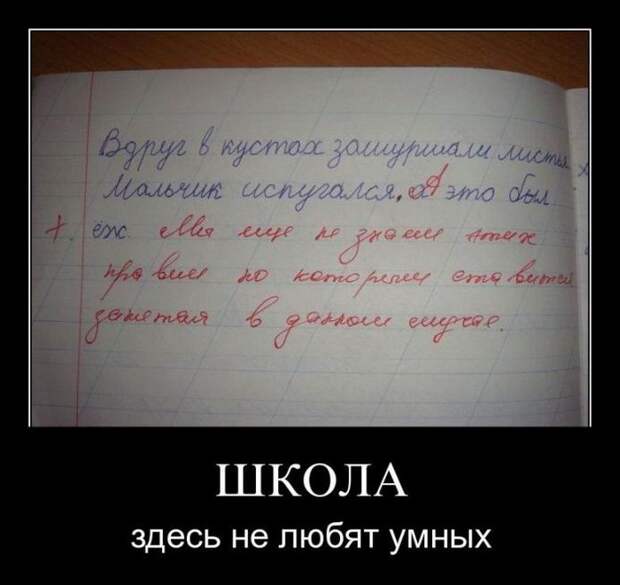 Вдруг в кустах зашуршали листья
Мальчик испугался, а А это был
+ ёж. Мы еще не знаем этих
правил по которым ставится
запятая в данном случае.
ШКОЛА
здесь не любят умных